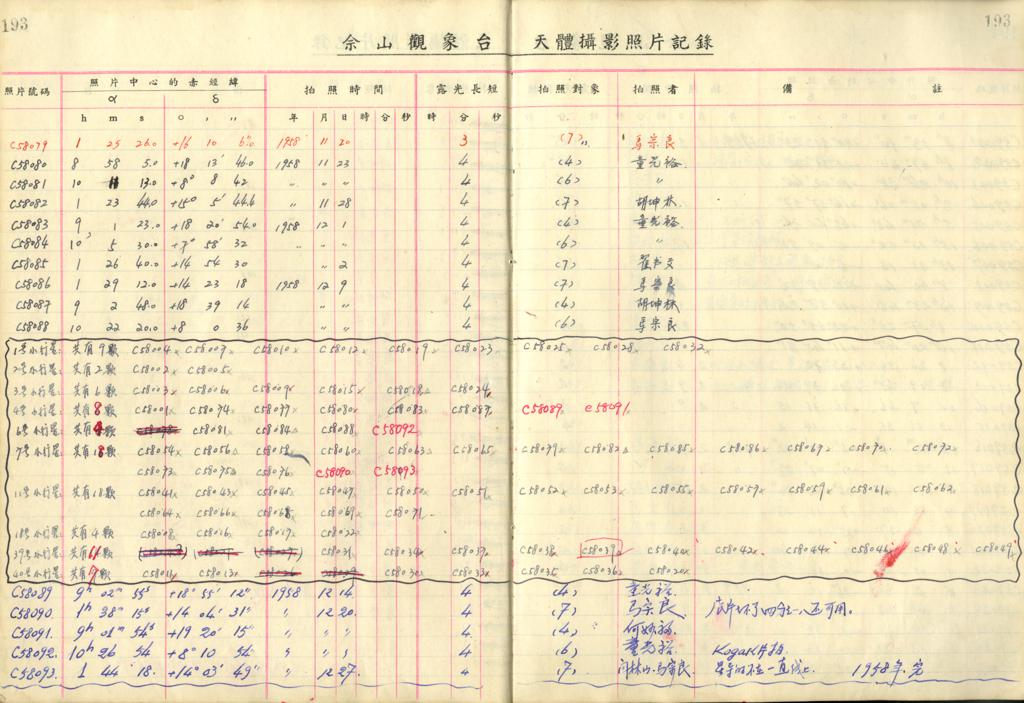 193 193
佘山觀象台 天體攝影照片記錄
照片號碼 照片中心的赤經緯 拍照時間 露光長短 拍照對象 拍照者 備註
α δ
h m s ○ , ,, 年 月 日 時 分 秒 時 分 秒
C58079 1 25 26.0 +16 10 1958 11 20 3 (7) 馬宗良
C58080 8 58 5.0 +18 13' 46.0 1958 11 23 4 (4) 童光裕
C58081 10 13.0 +8° 8 42 〃 〃 〃 4 (6) 〃
C58082 1 23 44.0 +15° 5' 44.6 〃 11 28 4 (7) 胡坤林
C58083 9 1 23.0 +18 20' 54.0 1958 12 1 4 (4) 童光裕
C58084 10 5 30.0 +7° 58' 32 〃 〃 〃 4 (6) 〃
C58085 1 26 40.0 +14 54 30 〃 2 4 (7)
C58086 1 29 12.0 +14 23 18 1958 12 9 4 (7) 馬宗良
C58087 9 2 48.0 +18 39 14 〃 〃 4 (4) 胡坤林
C58088 10 22 20.0 +8 0 36 〃 〃 4 (6) 馬宗良
1号小行星: 共有9颗 C58004x C58007x C58010x C58012x C58019x C58023x C58025x C58028x C58032x
2号小行星: 共有2颗 C58002x C58005x
3号小行星: 共有6颗 C58003x C58006x C58009x C58015x C58018 C58024
4号小行星: 共有8颗 C58001x C58074x C58077x C58080x C58083x C58087 C58089 C58091
6号小行星: 共有4颗 C58081x C58084 C58088 C58092
7号小行星: 共有18颗 C58054x C58056 C58060x C58063x C58065 C58079x C58082 C58085x C58086x C58067x C58070x C58072x
C58073x C58075 C58076 C58090 C58093
11号小行星: 共有18颗 C58041x C58043x C58045x C58047 C58050x C58051 C58052x C58053x C58055x C58057x C58059x C58061x C58062
C58064x C58066x C58068 C58069 C58071
18号小行星: 共有4颗 C58008 C58016 C58017x C58022
39号小行星: 共有11颗 C58031 C58034x C58037 C58038 C58039 C58040x C58042x C58044x C58046 C58048x C58049
40号小行星: 共有9颗 C58011x C58013x C58030x C58033x C58035 C58036 C58020x
C58089 9h 02m 55s +18° 55' 12" 1958 12 14 4 (4) 童光裕
C58090 1h 38m 15s +14 04' 31" 〃 12 20 4 (7) 馬宗良
C58091 9h 01m 54s +19 20' 15" 〃 〃 〃 4 (4)
C58092 10h 26 54 +8° 10 54 〃 〃 4 (6) 童光裕
C58093 1 44 18 +14° 03' 49" 12 27 4 (7) 1958年完